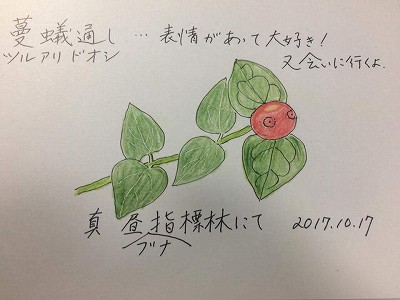 蔓蟻通し…表情があって大好き!
ツルアリドオシ
又会いに行くよ
真昼指標林にて 2017.10.17
ブナ